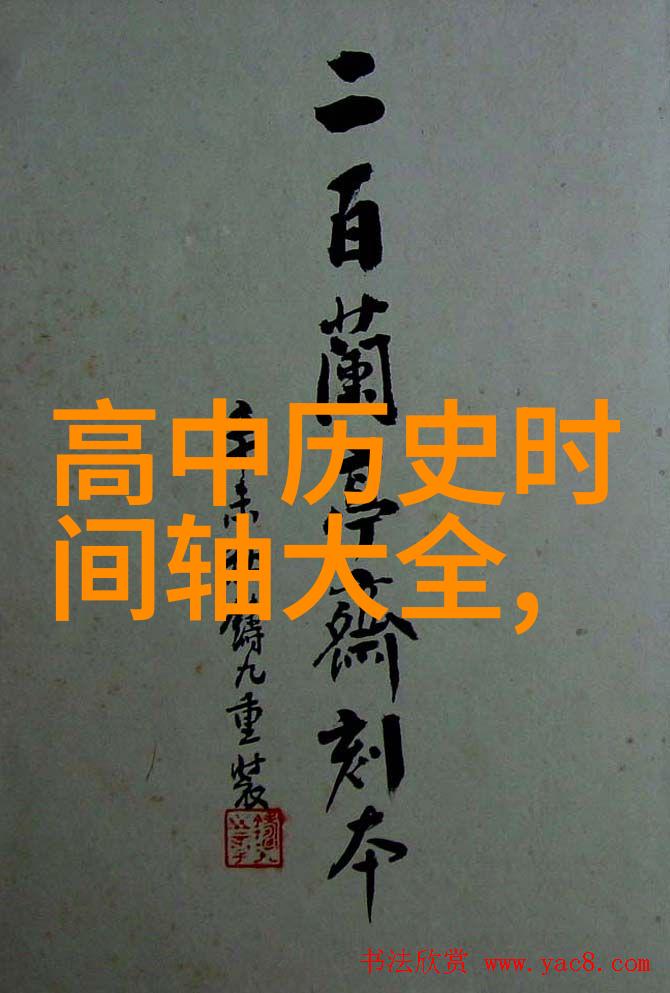 二百蘭亭齋刻本
高中历史时
间轴大全,
书法欣赏 www.yac8.com